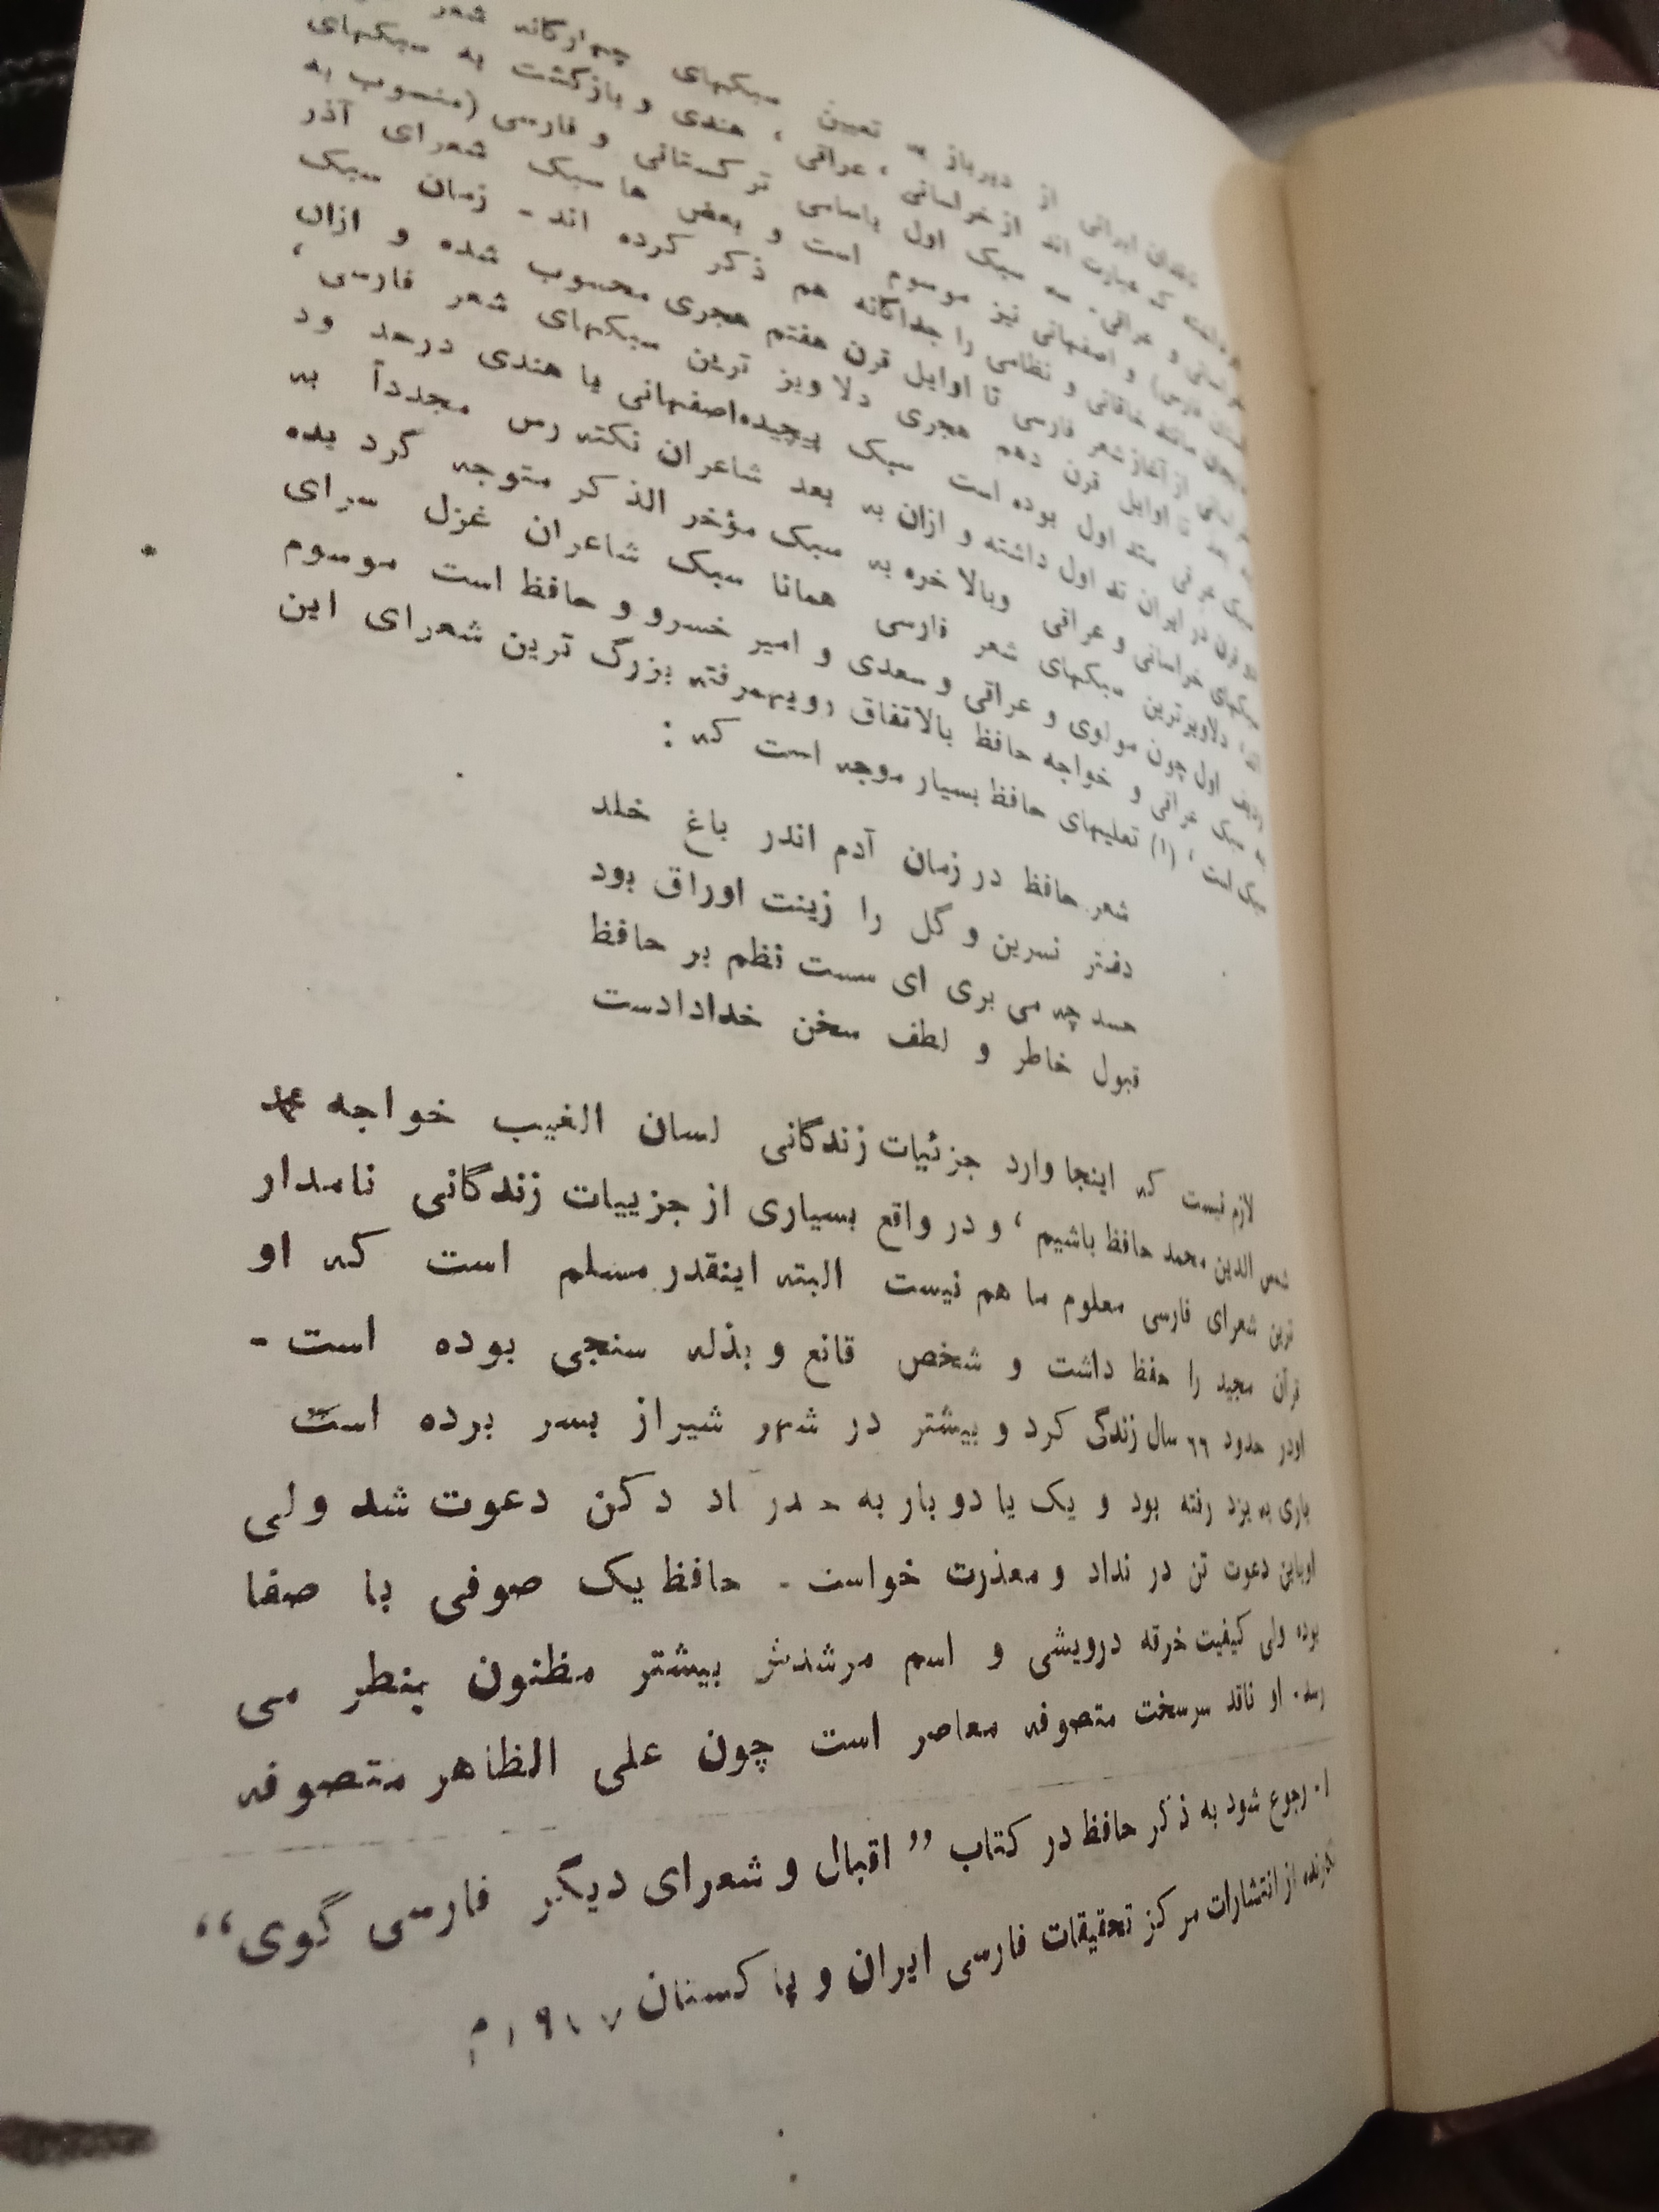 ایرانی از دیرباز به تعیین سبکهای چهارگانه شعر
که عبارت اند از خراسانی ، عراقی ، هندی و بازگشت به سبکهای
و عراقی۔ سبک اول باساسی ترکستانی و فارسی (منسوب به
فارس) و اصفهانی نیز موسوم است و بعض ها سبک شعرای آذر
مانند خاقانی و نظامی را جداگانه هم ذکر کرده اند ۔ زمان سبک
از آغاز شعر فارسی تا اوایل قرن هفتم هجری محسوب شده و ازان
بعد تا اوایل قرن دهم هجری دلاویز ترین سبکهای شعر فارسی ،
سبک عرفی متد اول بوده است سبک پیچیده اصفهانی یا هندی درحد ود
دو قرن در ایران تد اول داشته و ازان به بعد شاعران نکته رس مجدداً به
سبکهای خراسانی و عراقی وبالا خره به سبک مؤخر الذ کر متوجه گرد یده
اند، دلاویزترین سبکهای شعر فارسی همانا سبک شاعران غزل سرای
ردیف اول چون مولوی و عراقی و سعدی و امیر خسرو و حافظ است موسوم
به سبک عراقی و خواجه حافظ بالاتفاق رویهمرفته بزرگ ترین شعرای این
سبک است ، (۱) تعلیهای حافظ بسیار موجه است که :
شعر حافظ در زمان آدم اندر باغ خلد
دفتر نسرین و گل را زینت اوراق بود
حسد چه می بری ای سست نظم بر حافظ
قبول خاطر و لطف سخن خدادادست
لازم نیست که اینجا وارد جزئیات زندگانی لسان الغیب خواجه محمد
شمس الدین محمد حافظ باشیم ، و در واقع بسیاری از جزییات زندگانی نامدار
ترین شعرای فارسی معلوم ما هم نیست البته اینقدر مسلم است که او
قرآن مجید را حفظ داشت و شخص قانع و بذله سنجی بوده است ۔
اودر حدود ۶۶ سال زندگی کرد و بیشتر در شهر شیراز بسر برده است
باری به یزد رفته بود و یک یا دو بار به دکن دعوت شد ولی
اوباین دعوت تن در نداد و معذرت خواست ۔ حافظ یک صوفی با صفا
بوده ولی کیفیت خرقه درویشی و اسم مرشدش بیشتر مظنون بنظر می
رسد ۔ او ناقد سرسخت متصوفه معاصر است چون علی الظاهر متصوفه
۱۔ رجوع شود به ذکر حافظ در کتاب ”اقبال و شعرای دیگر فارسی گوی“
نگارنده از انتشارات مرکز تحقیقات فارسی ایران و پاکستان ۱۹۷۷ م